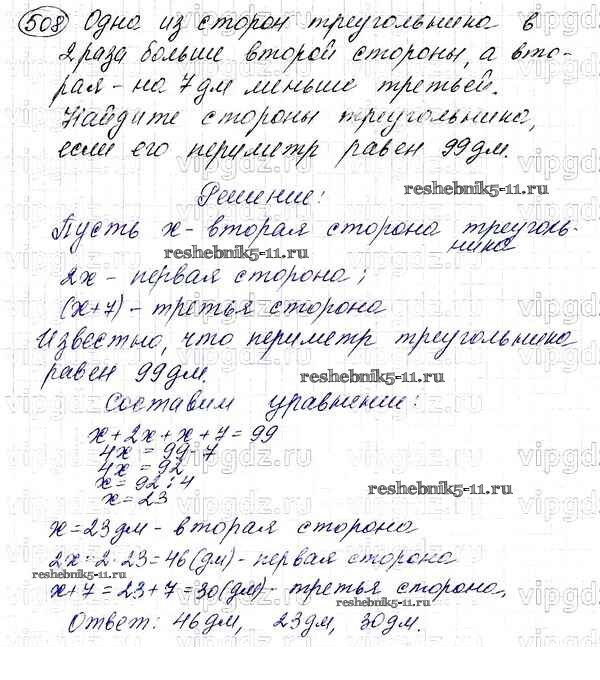 508 Одна из сторон треугольника в
2 раза больше второй стороны, а вто-
рая - на 7 дм меньше третьей.
Найдите стороны треугольника,
если его периметр равен 99 дм.
Решение:
reshebnik5-11.ru
Пусть x - вторая сторона треуголь-
ника
reshebnik5-11.ru
2x - первая сторона;
(x+7) - третья сторона
Известно, что периметр треугольника
равен 99 дм.
reshebnik5-11.ru
Составим уравнение:
x+2x+x+7=99
4x=99-7
4x=92
x=92:4
reshebnik5-11.ru
x=23
x=23 дм - вторая сторона
2x=2·23=46(дм) - первая сторона
reshebnik5-11.ru
x+7=23+7=30(дм) - третья сторона.
reshebnik5-11.ru
Ответ: 46 дм, 23 дм, 30 дм.
vipgdz.ru